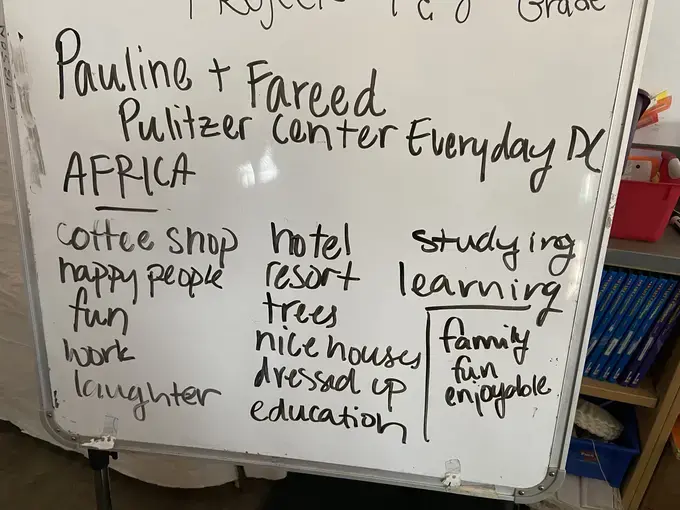 Grade
Pauline + Fareed
Pulitzer Center Everyday DC
AFRICA
coffee shop
happy people
fun
work
laughter
hotel
resort
trees
nice houses
dressed up
education
studying
learning
family
fun
enjoyable